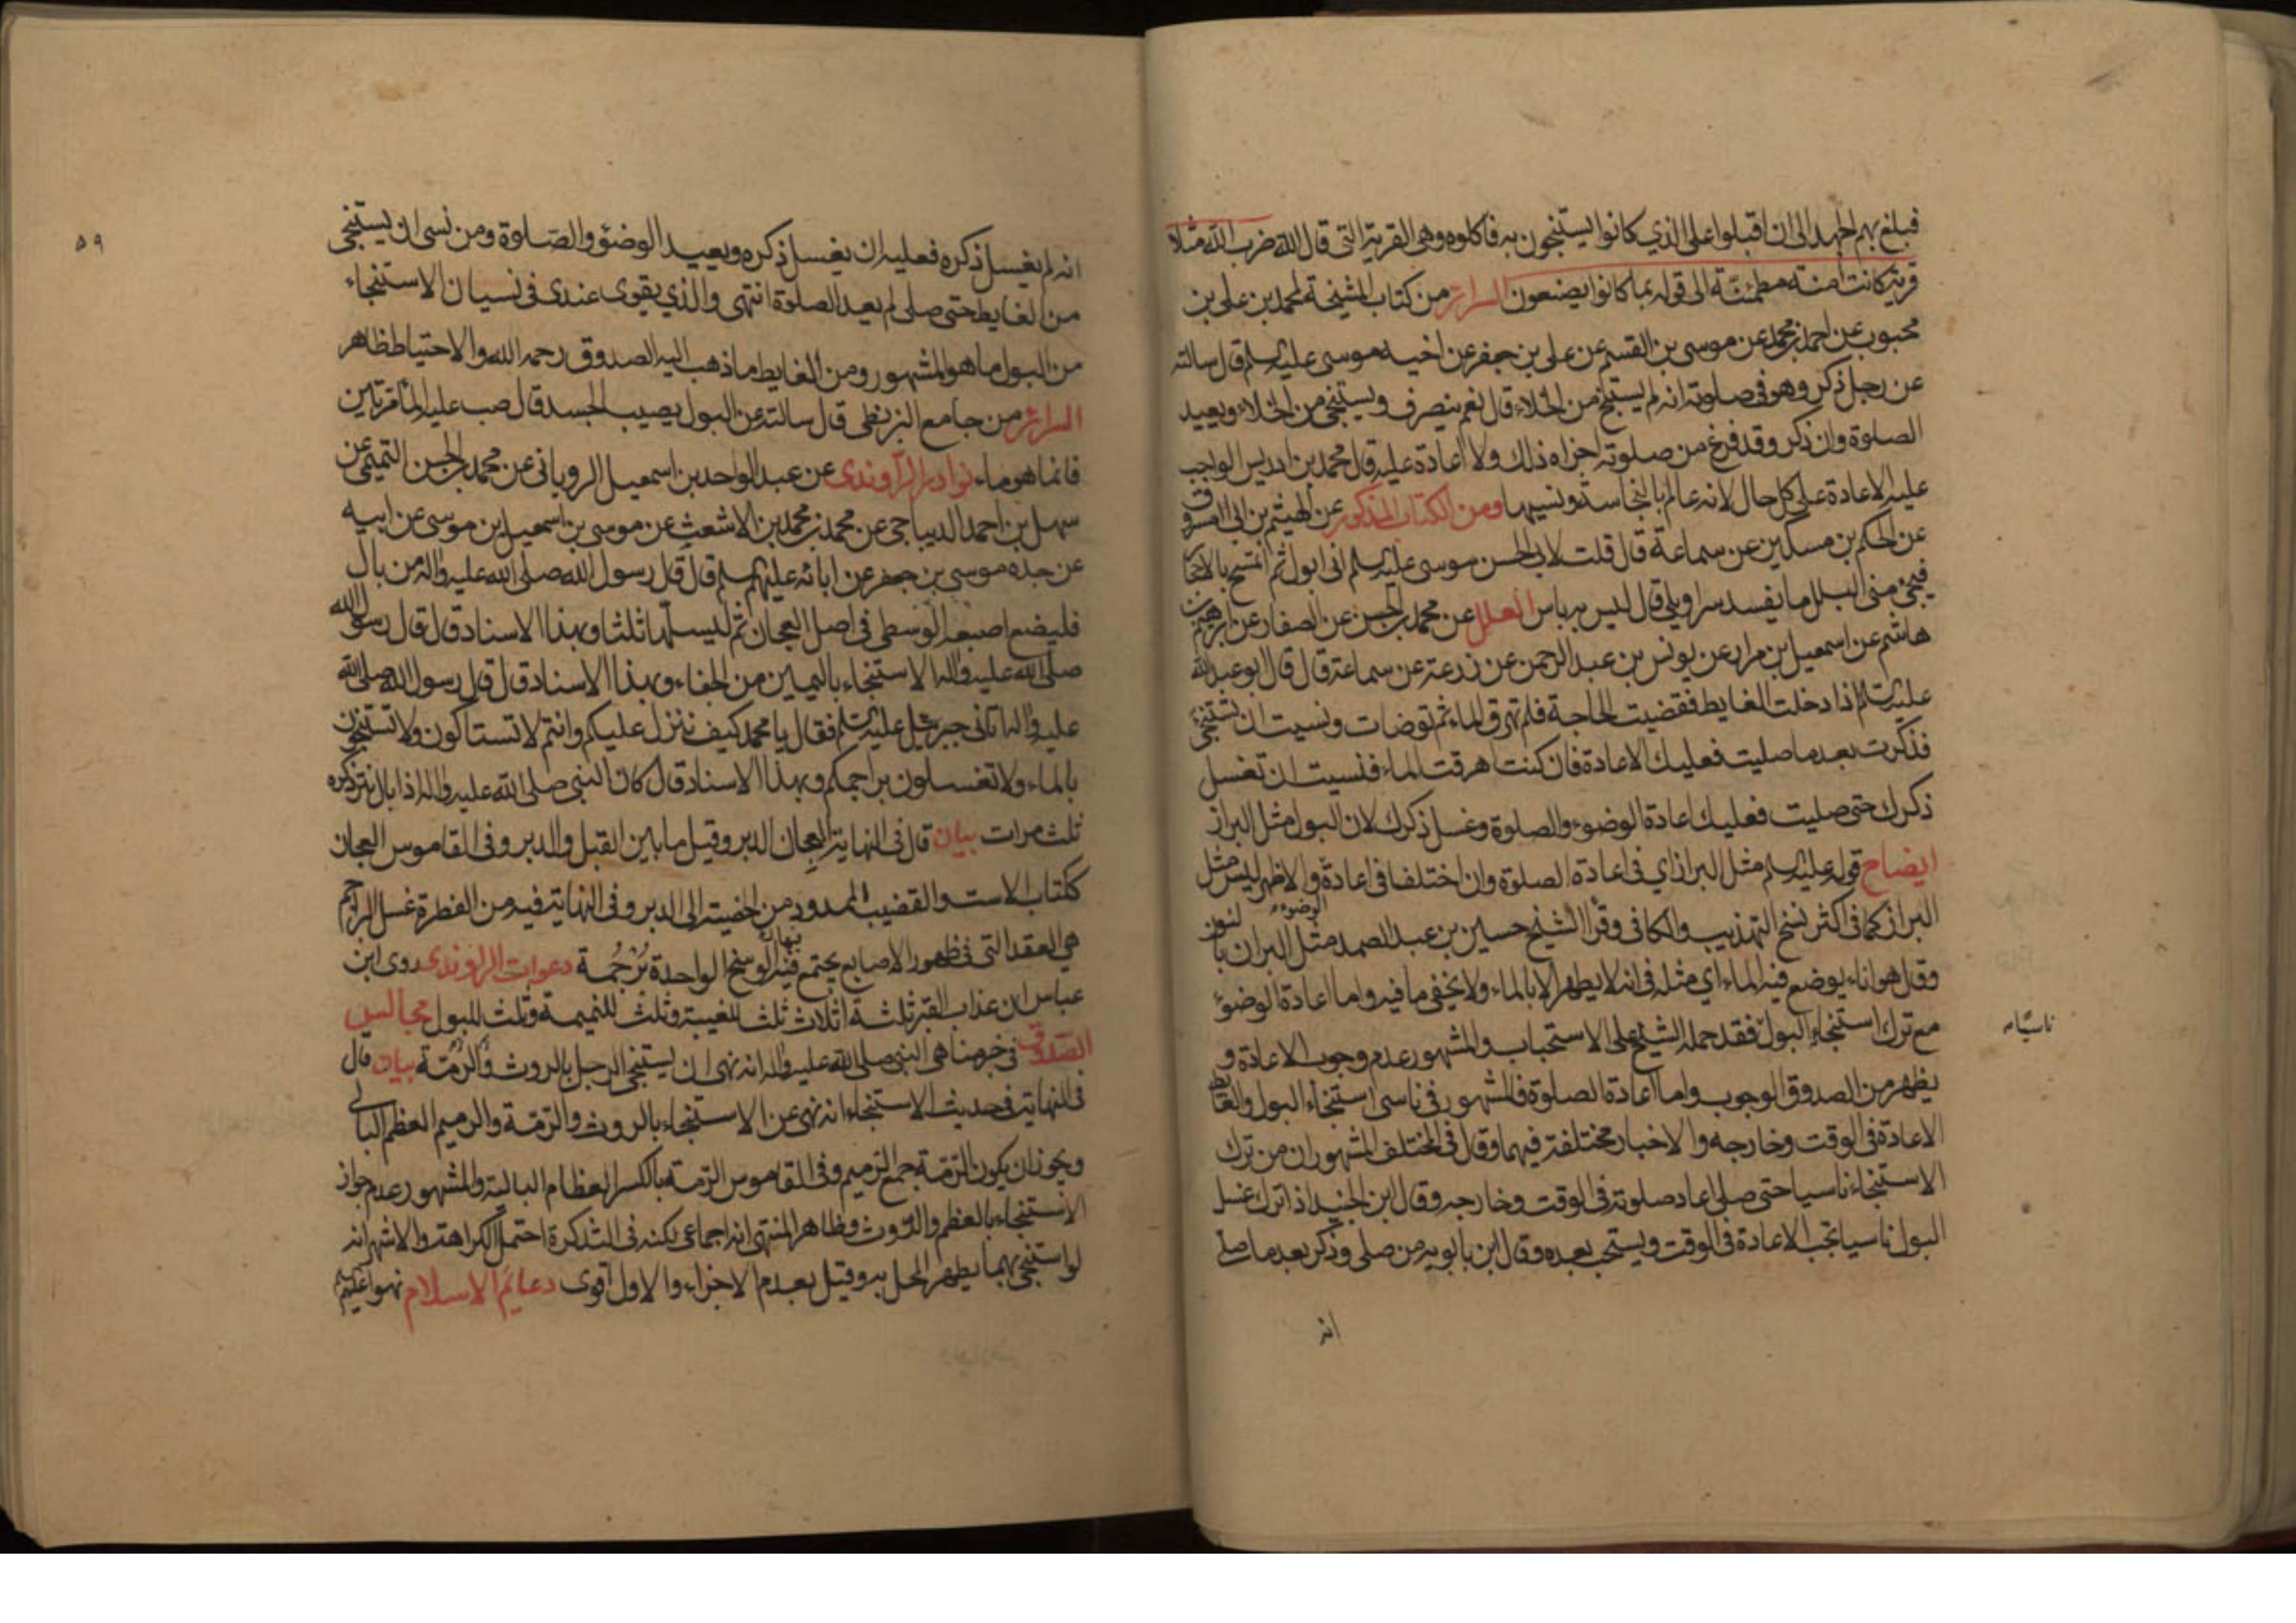 فبلغ بهم الجهد الى ان اقبلوا على الذي كانوا يستنجون به فاكلوه وهى القرية التى قال الله ضرب الله مثلا
قرية كانت امنة مطمئنة الى قوله بما كانوا يصنعون السرائر من كتاب المشيخة لمحمد بن على بن
محبوب عن احمد بن محمد عن موسى بن القسم عن على بن جعفر عن اخيه موسى عليه السلم قال سالته
عن رجل ذكر وهو فى صلوته انه لم يستنج من الخلاء قال نعم ينصرف ويستنجى من الخلاء ويعيد
الصلوة وان ذكر وقد فرغ من صلوته اجزاه ذلك ولا اعادة عليه قال محمد بن ادريس الواجب
عليه الاعادة على كل حال لانه عالم بالنجاسة ونسيها ومن الكتاب المذكور عن الهيثم بن ابى المسروق
عن الحكم بن مسكين عن سماعة قال قلت لابى الحسن موسى عليه السلم انى ابول ثم اتمسح بالاحجار
فيجئ منى البلل ما يفسد سراويلى قال ليس به باس العلل عن محمد بن الحسن عن الصفار عن ابرهيم بن
هاشم عن اسمعيل بن مرار عن يونس بن عبد الرحمن عن زرعة عن سماعة قال قال ابو عبد الله
عليه السلم اذا دخلت الغايط فقضيت الحاجة فلم تهرق الماء ثم توضات ونسيت ان تستنجى
فذكرت بعد ما صليت فعليك الاعادة فان كنت اهرقت الماء فنسيت ان تغسل
ذكرك حتى صليت فعليك اعادة الوضوء والصلوة وغسل ذكرك لان البول مثل البراز
ايضاح قوله عليه السلم مثل البراز اي فى اعادة الصلوة وان اختلفا فى اعادة الوضوء والاظهر ليس مثل
البراز كما فى اكثر نسخ التهذيب والكافى وقرأ الشيخ حسين بن عبد الصمد مثل البران بالنون
وقال هو اناء يوضع فيه الماء اي مثله فى انه لا يطهر الا بالماء ولا يخفى ما فيه واما اعادة الوضوء
مع ترك استنجاء البول فقد حمله الشيخ على الاستحباب والمشهور عدم وجوب الاعادة و
يظهر من الصدوق الوجوب واما اعادة الصلوة فالمشهور فى ناسى استنجاء البول والغايط
الاعادة فى الوقت وخارجه والاخبار مختلفة فيهما وقال فى المختلف المشهور ان من ترك
الاستنجاء ناسيا حتى صلى اعاد صلوته فى الوقت وخارجه وقال ابن الجنيد اذا ترك غسل
البول ناسيا تجب الاعادة فى الوقت ويستحب بعده وقال ابن بابويه من صلى وذكر بعد ما صلى
انه
٥٩
انه لم يغسل ذكره فعليه ان يغسل ذكره ويعيد الوضوء والصلوة ومن نسى ان يستنجى
من الغايط حتى صلى لم يعد الصلوة انتهى والذي يقوى عندى فى نسيان الاستنجاء
من البول ما هو المشهور ومن الغايط ما ذهب اليه الصدوق رحمه الله والاحتياط ظاهر
السرائر من جامع البزنطى قال سالته عن البول يصيب الجسد قال صب عليه الماء مرتين
فانما هو ماء نوادر الراوندى عن عبد الواحد بن اسمعيل الرويانى عن محمد بن الحسن التميمى عن
سهل بن احمد الديباجى عن محمد بن محمد بن الاشعث عن موسى بن اسمعيل بن موسى عن ابيه
عن جده موسى بن جعفر عن ابائه عليهم السلم قال قال رسول الله صلى الله عليه واله من بال
فليضع اصبعه الوسطى فى اصل العجان ثم ليسلها ثلثا وبهذا الاسناد قال قال رسول الله
صلى الله عليه واله الاستنجاء باليمين من الجفاء وبهذا الاسناد قال قال رسول الله صلى الله
عليه واله اتانى جبرئيل عليه السلم فقال يا محمد كيف ننزل عليكم وانتم لا تستاكون ولا تستنجون
بالماء ولا تغسلون براجمكم وبهذا الاسناد قال كان النبى صلى الله عليه واله اذا بال نتر ذكره
ثلث مرات بيان قال فى النهاية العجان الدبر وقيل ما بين القبل والدبر وفى القاموس العجان
ككتاب الاست والقضيب الممدود من الخصية الى الدبر وفى النهاية فيه من الفطرة غسل البراجم
هي العقد التى فى ظهور الاصابع يجتمع فيها الوسخ الواحدة برجمة دعوات الراوندى روى ابن
عباس ان عذاب القبر ثلثة اثلاث ثلث للغيبة وثلث للنميمة وثلث للبول مجالس
الصدوق فى خبر مناهى النبى صلى الله عليه واله انه نهى ان يستنجى الرجل بالروث والرمة بيان قال
فى النهاية فى حديث الاستنجاء انه نهى عن الاستنجاء بالروث والرمة والرميم العظم البالى
ويجوز ان يكون الرمة جمع الرميم وفى القاموس الرمة بالكسر العظام البالية والمشهور عدم جواز
الاستنجاء بالعظم والروث وظاهر المنتهى انه اجماعى لكنه فى التذكرة احتمل الكراهة والاشهر انه
لو استنجى بهما يطهر المحل به وقيل بعدم الاجزاء والاول اقوى دعائم الاسلام نهوا عليهم